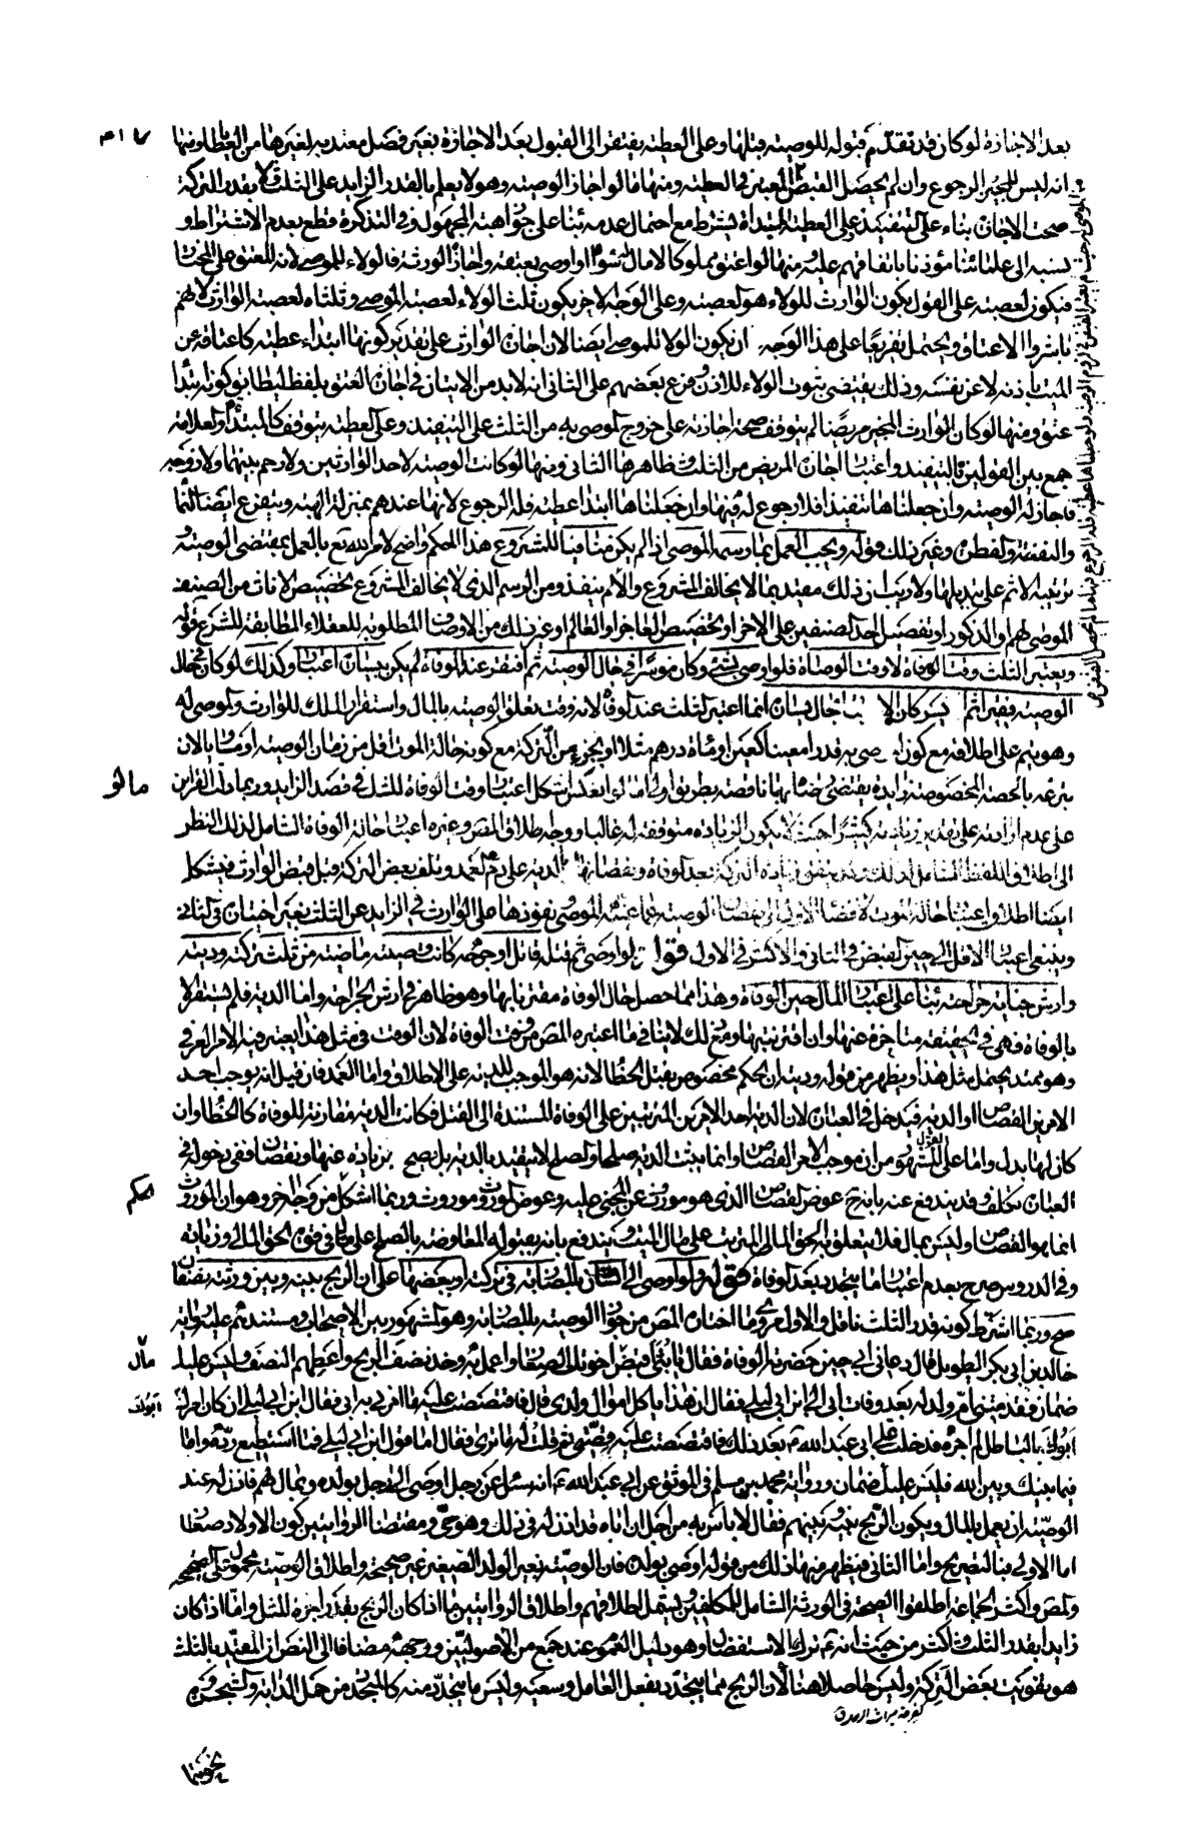 بعد الاجازة لو كان قد تقدم قبوله للوصية قبلها وعلى العطية يفتقر الى القبول بعد الاجازة بغير فصل معتد به لغيرها من العطايا ومنها
انه ليس للمجيز الرجوع وان لم يحصل القبض المعتبر في العطية ومنها ما لو اجاز الوصية وهو لا يعلم بالقدر الزايد على الثلث ولا بقدر التركة
صحت الاجازة بناء على التنفيذ وعلى العطية المبتدأة يشترط مع احتمال عدمه بناء على جواز هبة المجهول وفي التذكرة قطع بعدم الاشتراط و
نسبه الى علمائنا مؤذنا باتفاقهم عليه ومنها لو اعتق مملوكا لا مال له سواه او اوصى بعتقه واجاز الورثة فالولاء للموصى لانه المعتق على المختار
فيكون لعصبته على القول بكون الوارث للولاء هو العصبة وعلى الوجه الاخر يكون ثلث الولاء لعصبة الموصى وثلثاه لعصبة الوارث لانهم
باشروا الاعتاق ويحتمل تفريعا على هذا الوجه ان يكون الولاء للموصى ايضا لان اجازة الوارث على تقدير كونها ابتداء عطية كاعتاقه عن
الميت باذنه لا عن نفسه وذلك يقتضى ثبوت الولاء للاذن وفرع بعضهم على الثانى انه لا بد من الاتيان في اجازة العتق بلفظ ليطابق كونه ابتدأ
عتق ومنها لو كان الوارث المجيز مريضا لم يتوقف صحة اجازته على خروج الموصى به من الثلث على التنفيذ وعلى العطية يتوقف كالمبتدأ والعلامة
جمع بين القولين بالتنفيذ واعتبار اجازة المريض من الثلث وظاهرها التنافى ومنها لو كانت الوصية لاحد الوارثين ولا رحم بينهما ولا زوجية
فاجاز له الوصية وان جعلناها تنفيذا فلا رجوع له فيها وان جعلناها ابتداء عطية فله الرجوع لانها عندهم بمنزلة الهبة ويتفرع ايضا
والنفقة والفطرة وغير ذلك قوله ويجب العمل بما رسمه الموصى اذا لم يكن منافيا للمشروع هذا الحكم واضح لامر الله تع بالعمل بمقتضى الوصية و
ترتيبه الاثم على تبديلها ولا ريب ان ذلك مقيد بما لا يخالف المشروع والا لم ينفذ ومن الرسم الذى لا يخالف المشروع تخصيص الاناث من الصنف
الموصى لهم او الذكور او تفضيل احد الصنفين على الاخر او تخصيص الفاجر او العالم او غير ذلك من الاوصاف المطلوبة للعقلاء المطابقة للشرع قوله
ويعتبر الثلث وقت الوفاة لا وقت الوصاة فلو اوصى بشئ وكان موسرا في حال الوصية ثم افتقر عند الوفاة لم يكن بيساره اعتبار وكذلك لو كان في حال
الوصية فقيرا ثم ايسر كان الاعتبار بحال يساره انما اعتبر الثلث عند الوفاة لانه وقت تعلق الوصية بالمال واستقرار الملك للوارث والموصى له
وهو يتم على اطلاقه مع كون الموصى به قدرا معينا كعين او مائة درهم مثلا او بجزء من التركة مع كونه حالة الموت اقل من زمان الوصية او مساويا لان
تبرعه بالحصة المخصوصة زايدة يقتضى رضاه بها ناقصة بطريق اولى اما لو انعكس اشكل اعتبار وقت الوفاة للشك في قصد الزايد وربما دلت القراين
على عدم ارادته على تقدير زيادته كثيرا حيث لا يكون الزيادة متوقعة له غالبا ووجه اطلاق المص وغيره اعتبار حالة الوفاة الشامل لذلك النظر
الى اطلاق اللفظ الشامل لذلك وقد يتفق زيادة التركة بعد الوفاة ونقصانها كالدية على دم العمد وتلف بعض التركة قبل قبض الوارث فيشكل
ايضا اطلاق اعتبار حالة الموت لافضاء الاول الى نقصان الوصية عما عينه الموصى ونفوذها على الوارث في الزايد عن الثلث بغير اختياره في الثانى
وينبغى اعتبار الاقل الى حين القبض في الثانى والاكثر في الاول قوله ولو اوصى ثم قتله قاتل او جرحه كانت وصيته ماضية من ثلث تركته وديته
وارش جراحته بناء على اعتبار المال حين الوفاة وهذا مما حصل حال الوفاة مقترنا بها وهو ظاهر في ارش الجراحة واما الدية فلم تستقر الا
بالوفاة فهى في الحقيقة متأخرة عنها وان اقترنتها ومع ذلك لا ينافي ما اعتبره المص من وقت الوفاة لان الوقت في مثل هذا يعتبر فيه الامر العرفي
وهو ممتد يحتمل مثل هذا ويظهر من قوله وديته ان الحكم مخصوص بقتل الخطأ لانه هو الموجب للدية على الاطلاق واما العمد فان قيل انه يوجب احد
الامرين القصاص او الدية فيدخل في العبارة لان الدية احد الامرين المترتبين على الوفاة المستندة الى القتل فكانت الدية مقارنة للوفاة كالخطأ وان
كان لها بدل واما على القول المشهور من ان موجب الامر القصاص وانما يثبت الدية صلحا والصلح لا يتقيد بالدية بل يصح بزيادة عنها ونقصان ففى دخوله في
العبارة تكلف وقد يندفع عنه بان العوض القصاص الذى هو موروث عن المجنى عليه وعوض الموروث موروث وربما اشكل من وجه اخر وهو ان الموروث
انما هو القصاص وليس بمال فلا يتعلق به الحق المالى المترتب على مال الميت ويندفع بانه بقبوله المعاوضة بالصلح على مال في قوة الحق المالى وزيادة
وفي الدروس صرح بعدم اعتبار ما يتجدد بعد الوفاة قوله ولو اوصى الى انسان بالمضاربة في تركته او ببعضها على ان الربح بينه وبين ورثته نصفان
صح وربما اشترط كونه قدر الثلث فاقل والاول مروي ما اختاره المص من جواز الوصية بالمضاربة وهو المشهور بين الاصحاب ومستندهم عليه رواية
خالد بن ابى بكر الطويل قال دعانى ابى حين حضرته الوفاة فقال يا بنى اقبض مال اخوتك الصغار واعمل به وخذ نصف الربح واعطهم النصف وليس عليك
ضمان فقدمتنى ام ولد له بعد وفات ابى الى ابن ابى ليلى فقال ان هذا ياكل اموال ولدى قال فاقتصصت عليه ما امرنى به ابى فقال ابن ابى ليلى ان كان ابوك امرك
بالباطل لم اجزه فدخلت على ابى عبد الله ع بعد ذلك فاقتصصت عليه قصتى ثم قلت له ما ترى فقال اما قول ابن ابى ليلى فما استطيع رده واما
فيما بينك وبين الله فليس عليك ضمان ورواية محمد بن مسلم في الموثق عن ابى عبد الله ع انه سئل عن رجل اوصى الى رجل بولده وبمال لهم فاذن له عند
الوصية ان يعمل بالمال ويكون الربح بينه وبينهم فقال لا باس به من اجل ان اباه قد اذن له في ذلك وهو حى ومقتضى الروايتين كون الاولاد صغارا
اما الاولى فبالتصريح واما الثانى فيظهر منها ذلك من قوله اوصى بولده فان الوصية بغير الولد الصغير غير صحيحة واطلاق الوصية محمول على الصحيحة
والمص واكثر الجماعة اطلقوا الصحة في الورثة الشامل للمكلفين ويشمل اطلاقهم واطلاق الروايتين ما اذا كان الربح بقدر اجرة المثل وما اذا كان
زايدا بقدر الثلث واكثر من حيث انه ع ترك الاستفصال وهو دليل العموم عند جمع من الاصوليين ووجهه مضافا الى النص ان المقيد بالثلث
هو تفويت بعض التركة وليس حاصلا هنا لان الربح مما يتجدد بفعل العامل وسعيه وليس ما يتجدد منه كالمتجدد من حمل الدابة والشجرة و